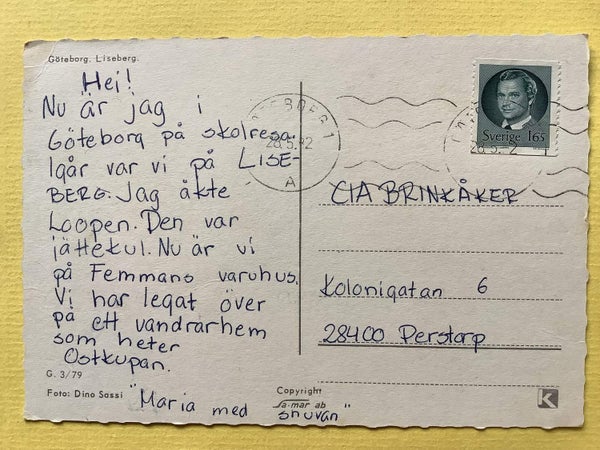 Göteborg. Liseberg.
Hej!
Nu är jag i
Göteborg på skolresa.
Igår var vi på LISE-
BERG. Jag åkte
Loopen. Den var
jättekul. Nu är vi
på Femmans varuhus.
Vi har legat över
på ett vandrarhem
som heter
Ostkupan.
G. 3/79
Foto: Dino Sassi
"Maria med snuvan"
Copyright
sa-mar ab
GÖTEBORG 1
28.5.82
A
Sverige 165
CIA BRINKÅKER
Kolonigatan 6
28400 Perstorp
K